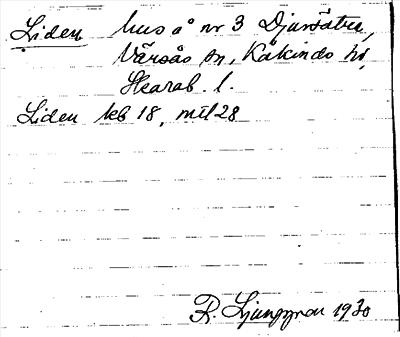 Liden hus å nr 3 Djursätra,
Vårsås sn, Kåkinds hd,
Skarab. l.
Liden keb 18, mtl 28
R. Ljunggren 1930